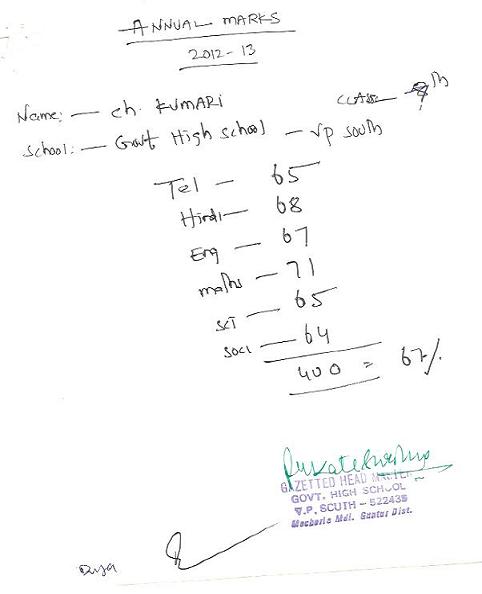 ANNUAL MARKS
2012-13
Name:- — ch. KUMARI
CLASS — th
School:- — Govt High school — vp south
Tel — 65
Hindi — 68
Eng — 67
maths — 71
SCI — 65
SOCI — 64
400 = 67%
GAZETTED HEAD MASTER
GOVT. HIGH SCHOOL
V.P. SOUTH - 522435
Macherla Mdl. Guntur Dist.